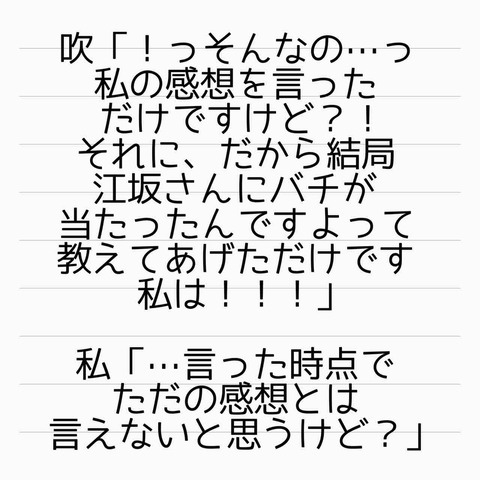 吹「！っそんなの…っ
私の感想を言った
だけですけど？！
それに、だから結局
江坂さんにバチが
当たったんですよって
教えてあげただけです
私は！！！」
私「…言った時点で
ただの感想とは
言えないと思うけど？」